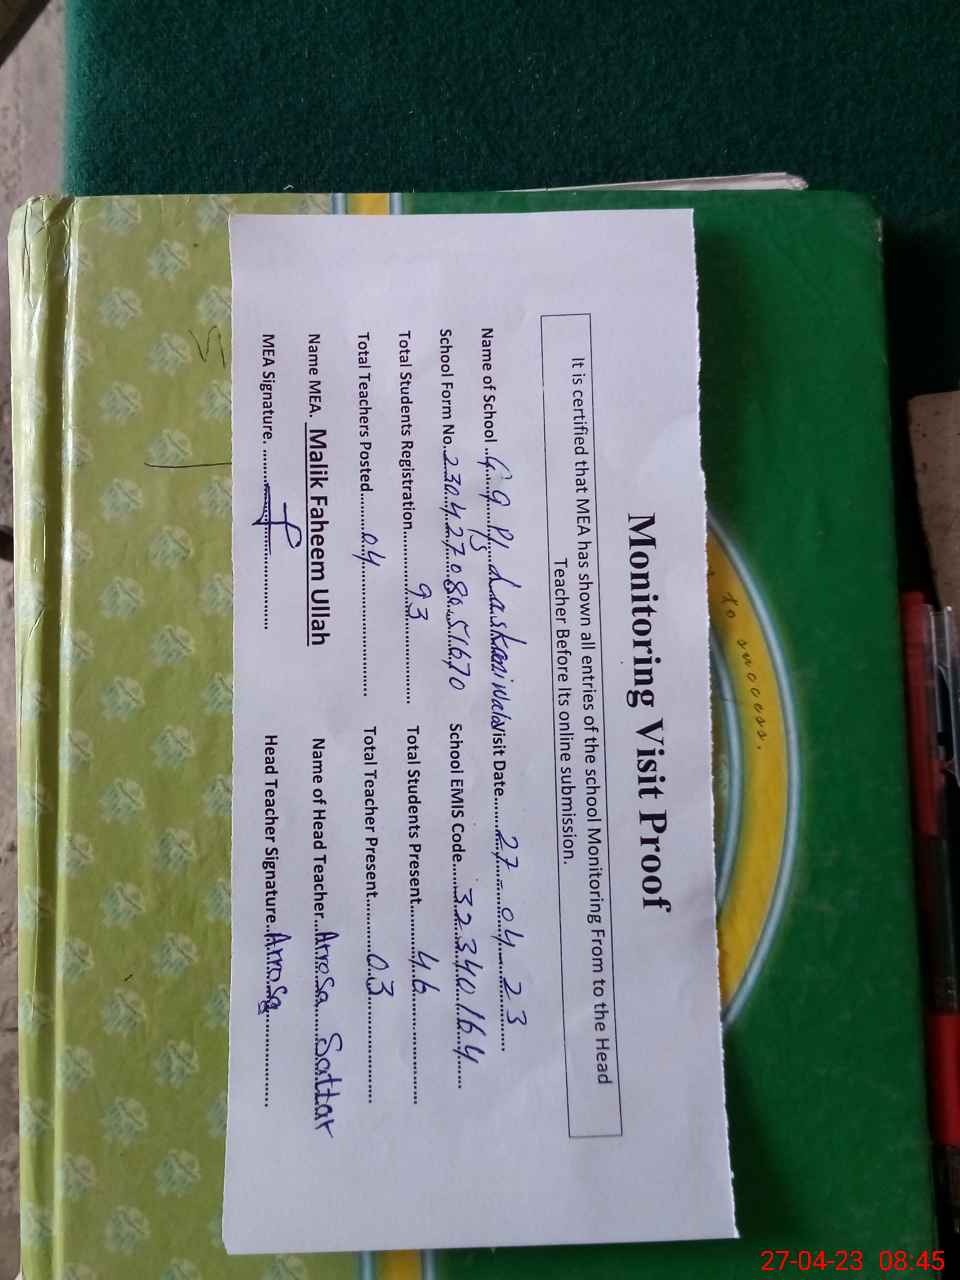 Monitoring Visit Proof
It is certified that MEA has shown all entries of the school Monitoring From to the Head
Teacher Before Its online submission.
Name of School ........ Visit Date........27-04-23........
School Form No..23042708051670 School EMIS Code......32340164......
Total Students Registration........93........ Total Students Present........46........
Total Teachers Posted........04........ Total Teacher Present........03........
Name MEA. Malik Faheem Ullah Name of Head Teacher...Arrosa Sattar
MEA Signature. ........ Head Teacher Signature..Arrosa........
to success.
27-04-23 08:45